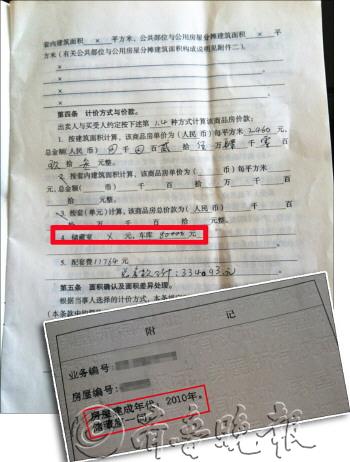 套内建筑面积 × 平方米，公共部位与公用房屋分摊建筑面积 × 平
方米（有关公共部位与公用房屋分摊建筑面积构成说明见附件二）。
×
×
×
×
第四条 计价方式与价款。
出卖人与买受人约定按下述第 1.4 种方式计算该商品房价款：
1. 按建筑面积计算，该商品房单价为（人民币）每平方米 2460 元，
总金额（人民币） 千 百 贰 拾 万 千 零 百
玖 拾 元整。
2. 按套内建筑面积计算，该商品房单价为（ 币）每平方米
元，总金额（ 币） 千 百 拾 万 千 百
拾 元整。
3. 按套（单元）计算，该商品房总价为（人民币） 千 百
拾 万 千 百 拾 元整。
4. 储藏室 × 元，车库 80000 元
5. 配套费 11764 元
第五条 面积确认及面积差异处理。
根据当事人选择的计价方式，本条规定
（本条款中
附 记
业务编号：
房屋编号：
房屋建成年代：2010年。
储藏室一同。
齐鲁晚报